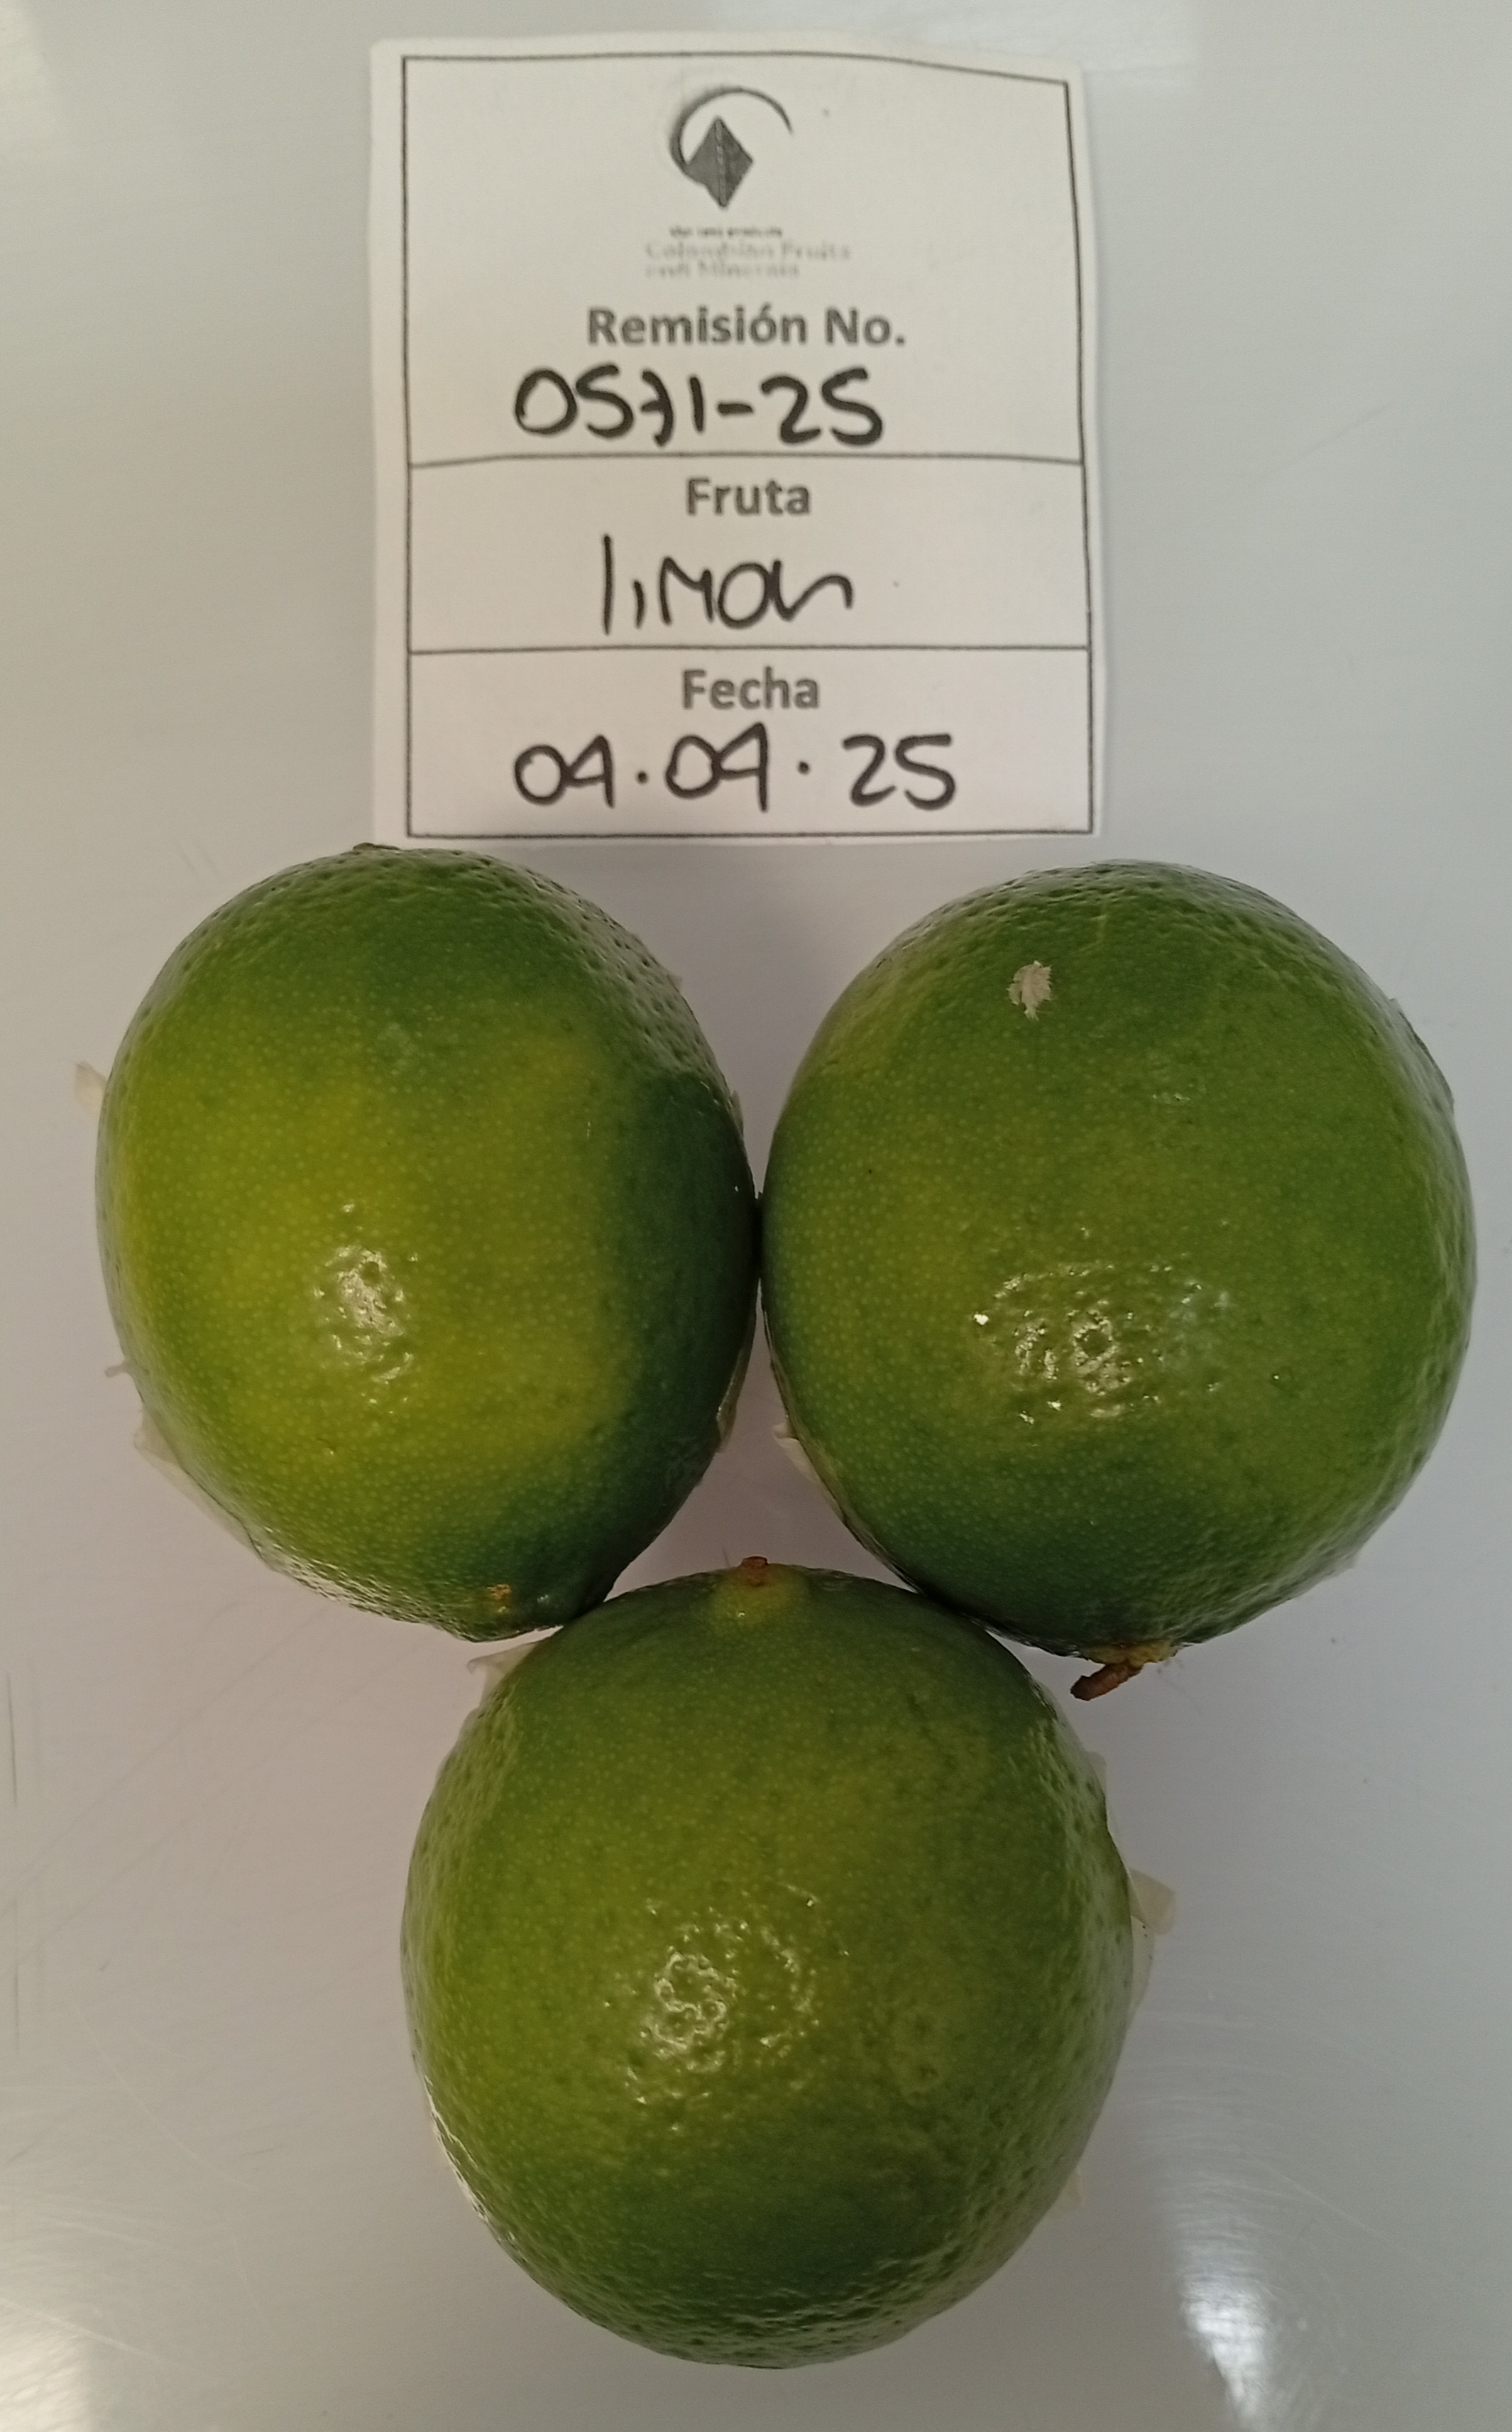 Colombian Fruits
and Minerals
Remisión No.
0571-25
Fruta
limon
Fecha
04.04.25